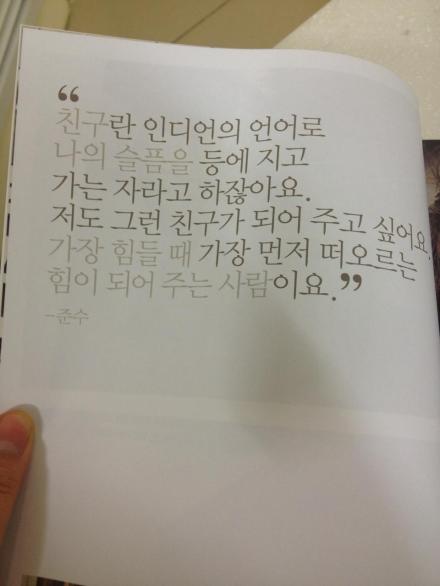 “
친구란 인디언의 언어로
나의 슬픔을 등에 지고
가는 자라고 하잖아요.
저도 그런 친구가 되어 주고 싶어요.
가장 힘들 때 가장 먼저 떠오르는
힘이 되어 주는 사람이요.”
-준수